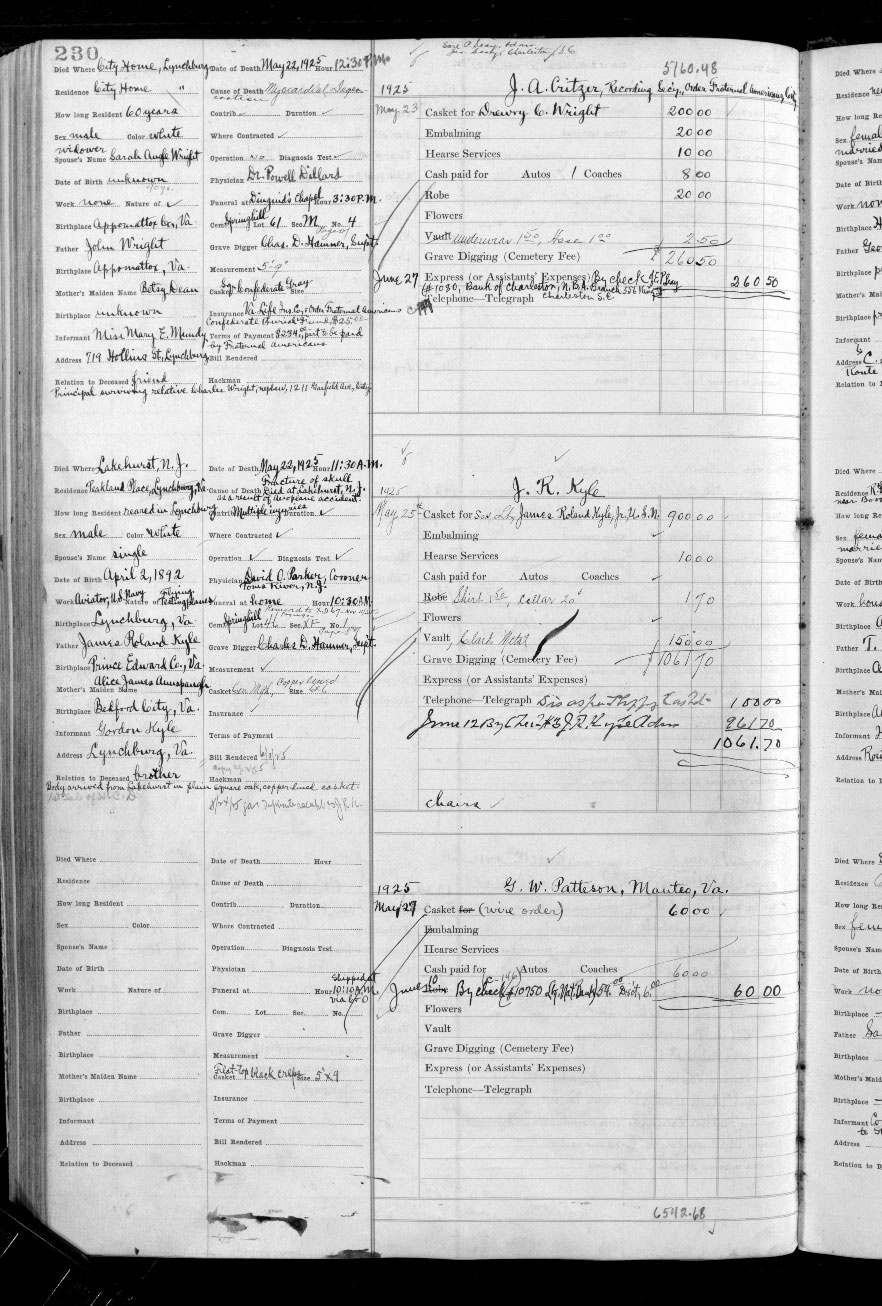 230
5160.48
Died Where City Home, Lynchburg Date of Death May 22, 1925 Hour 12:30 P.M.
Residence City Home " Cause of Death Myocardial
How long Resident 60 years Contrib. Duration
Sex male Color white Where Contracted
widower
Spouse's Name Sarah Angle Wright Operation no Diagnosis Test
Date of Birth unknown Physician Dr. Powell Dillard
Work none Nature of Funeral at Diuguid's Chapel Hour 3:30 P.M.
Birthplace Appomattox Co., Va. Cem. Springhill Lot 61 Sec. M No. 4
Father John Wright Grave Digger Chas. D. Hamner, Supt.
Birthplace Appomattox, Va. Measurement 5'9"
Mother's Maiden Name Betsy Dean Casket Confederate Gray Size
Birthplace unknown Insurance Va. Life Ins. Co., & Order Fraternal Americans
Confederate Burial Fund, $25.00
Informant Miss Mary E. Mundy Terms of Payment $234.00, part to be paid
by Fraternal Americans
Address 719 Hollins St., Lynchburg Bill Rendered
Relation to Deceased friend Hackman
Principal surviving relative Charles Wright, nephew, 1211 Garfield Ave., City
1925 J. A. Critzer, Recording Secy., Order Fraternal Americans, City
May 23 Casket for Drewry C. Wright 200 00
Embalming 20 00
Hearse Services 10 00
Cash paid for Autos 1 Coaches 8 00
Robe 20 00
Flowers
Vault underwear 1.50, Hose 1.00 2.50
Grave Digging (Cemetery Fee) 260 50
June 27 Express (or Assistants' Expenses) By check 260 50
(#1030, Bank of Charleston, N.B.A. Branch
Telephone—Telegraph Charleston S.C.
Died Where Lakehurst, N. J. Date of Death May 22, 1925 Hour 11:30 A.M.
Fracture of skull
Residence Peakland Place, Lynchburg, Va. Cause of Death Died at Lakehurst, N. J.
as a result of aeroplane accident.
How long Resident reared in Lynchburg Contrib. Multiple injuries Duration
Sex male Color White Where Contracted
Spouse's Name single Operation Diagnosis Test
Date of Birth April 2, 1892 Physician David O. Parker, Coroner
Toms River, N.J.
Work Aviator, U.S. Navy Nature of Flying Testing planes Funeral at home Hour 10:30 A.M.
Birthplace Lynchburg, Va. Cem. Springhill Lot 41 Sec. No. 1
Father James Roland Kyle Grave Digger Charles D. Hamner, Supt.
Birthplace Prince Edward Co., Va. Measurement
Mother's Maiden Name Alice James Casket Size 6x6 Copper lined
Birthplace Bedford City, Va. Insurance
Informant Gordon Kyle Terms of Payment
Address Lynchburg, Va. Bill Rendered 6/3/25
Relation to Deceased brother Hackman
Body arrived from Lakehurst in plain square oak, copper lined casket.
1925 J. R. Kyle
May 25th Casket for James Roland Kyle, Jr., U.S.N. 900 00
Embalming
Hearse Services 10 00
Cash paid for Autos Coaches
Robe Shirt 1.50, Collar 20¢ 1 70
Flowers
Vault, Clark Metal 150 00
Grave Digging (Cemetery Fee) 1061 70
Express (or Assistants' Expenses)
Telephone—Telegraph 100 00
June 12 By Check J. R. Kyle Adm 961 70
1061.70
chairs
Died Where Date of Death Hour
Residence Cause of Death
How long Resident Contrib. Duration
Sex Color Where Contracted
Spouse's Name Operation Diagnosis Test
Date of Birth Physician
Work Nature of Funeral at Hour Shipped at 10:10 P.M.
Birthplace Cem. Lot Sec. No.
Father Grave Digger
Birthplace Measurement
Mother's Maiden Name Casket Flat-top black crepe Size 5'x9
Birthplace Insurance
Informant Terms of Payment
Address Bill Rendered
Relation to Deceased Hackman
1925 G. W. Patteson, Manteo, Va.
May 27 Casket for (wire order) 60 00
Embalming
Hearse Services
Cash paid for Autos Coaches 60 00
June 10 Robe By check 60 00
Flowers
Vault
Grave Digging (Cemetery Fee)
Express (or Assistants' Expenses)
Telephone—Telegraph
6542.68